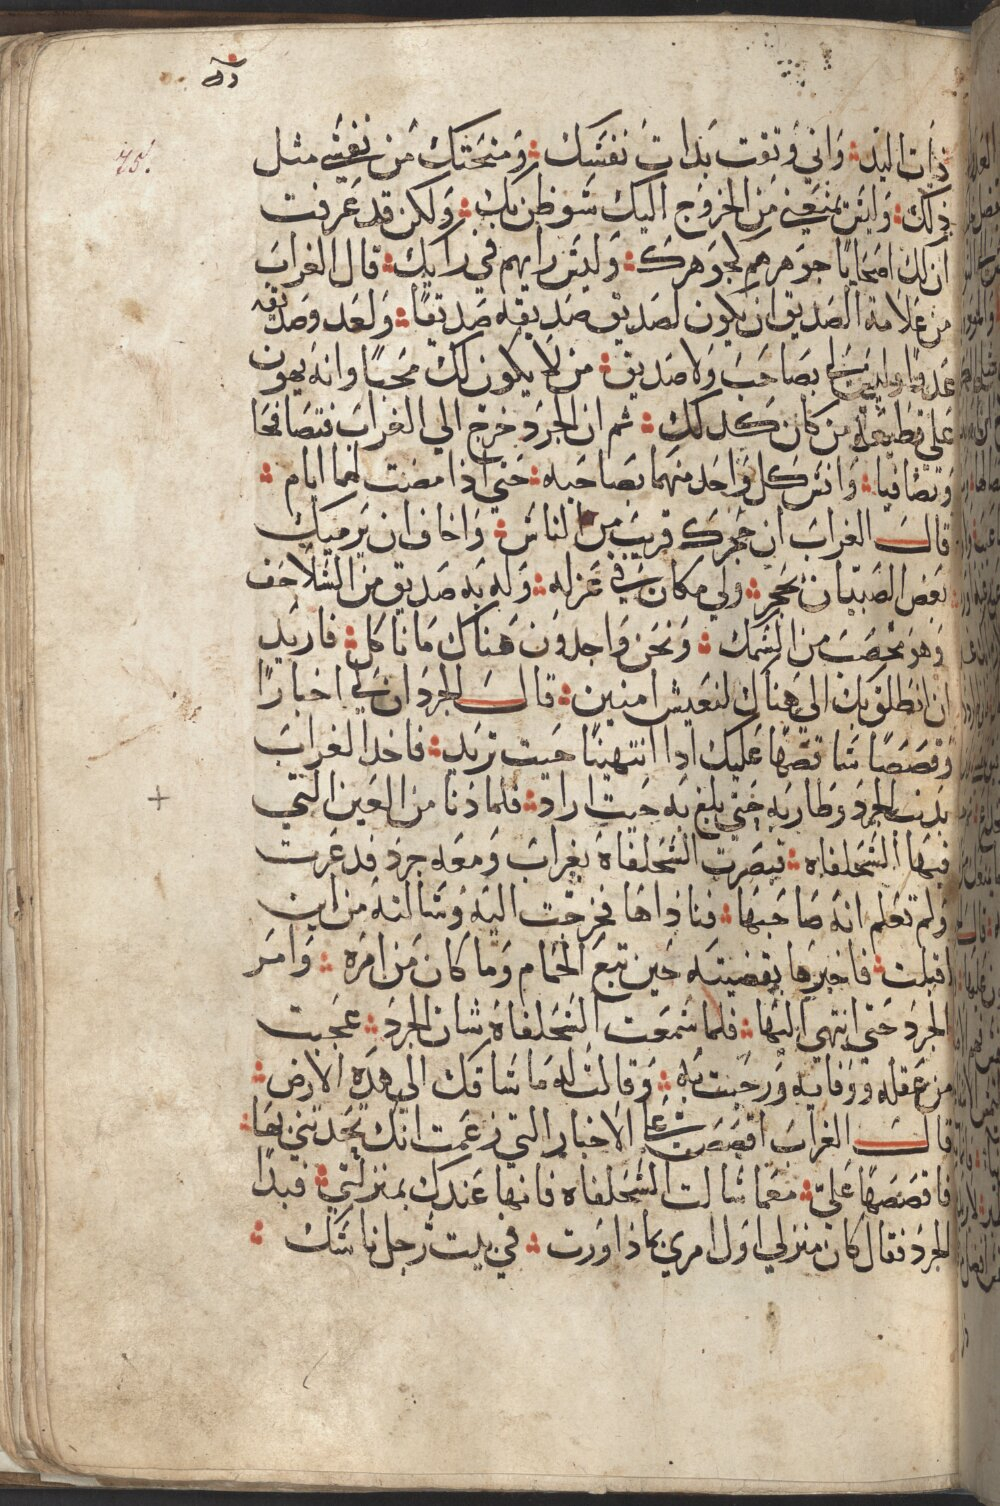 75.
ذات اليد ؛ واني وثقت بذات نفسك ؛ ومنحتك من نفسي مثل
ذلك ؛ وليس يمنعني من الخروج اليك سو ظن بك ؛ ولكن قد عرفت
ان لك اصحابا جوهرهم كجوهرك ؛ وليس رايهم في رايك ؛ قال الغراب
من علامة الصديق ان يكون لصديق صديقه صديقا ؛ ولعدو صديقه
عدوا وليس لي بصاحب ولا صديق ؛ من لا يكون لك محبا وانه يهون
علي قطيعة من كان كذلك ؛ ثم ان الجرد خرج الي الغراب فتصافحا
وتصافيا ؛ وانس كل واحد منهما بصاحبه ؛ حتي اذا مضت لهما ايام ؛
قال الغراب ان جحرك قريب من الناس ؛ واخاف ان يرميك
بعض الصبيان بحجر ؛ ولي مكان في عزله ؛ وله به صديق من السلاحف
وهو مخصب من السمك ؛ ونحن واجدون هناك ما ناكل ؛ فاريد
ان انطلق بك الي هناك لنعيش امنين ؛ قال الجرد ان لي اخبارا
وقصصا ساقصها عليك اذا انتهينا حيت تريد ؛ فاخد الغراب
بدنب الجرد وطار به حتي بلغ به حيت اراد ؛ فلما دنا من العين التي
فيها السحلفاه ؛ فبصرت السحلفاة بغراب ومعه جرد فدعرت
ولم تعلم انه صاحبها ؛ فناداها فخرجت اليه وسالته من اين
اقبلت ؛ فاخبرها بقضيته حين تبع الحمام وما كان من امره ؛ وامر
الجرد حتي انتهي اليها ؛ فلما سمعت السحلفاة شان الجرد ؛ عجبت
من عقله ووفايه ورحبت به ؛ وقالت له ما ساقك الي هذه الارض ؛
قال الغراب اقصص علي الاخبار التي زعمت انك تحدتني بها ؛
فاقصصها علي ؛ معما سالت السحلفاه فانها عندك بمنزلتي ؛ فبدا
الجرد فقال كان منزلي اول امري بماذاورت ؛ في بيت رجل ناسك ؛